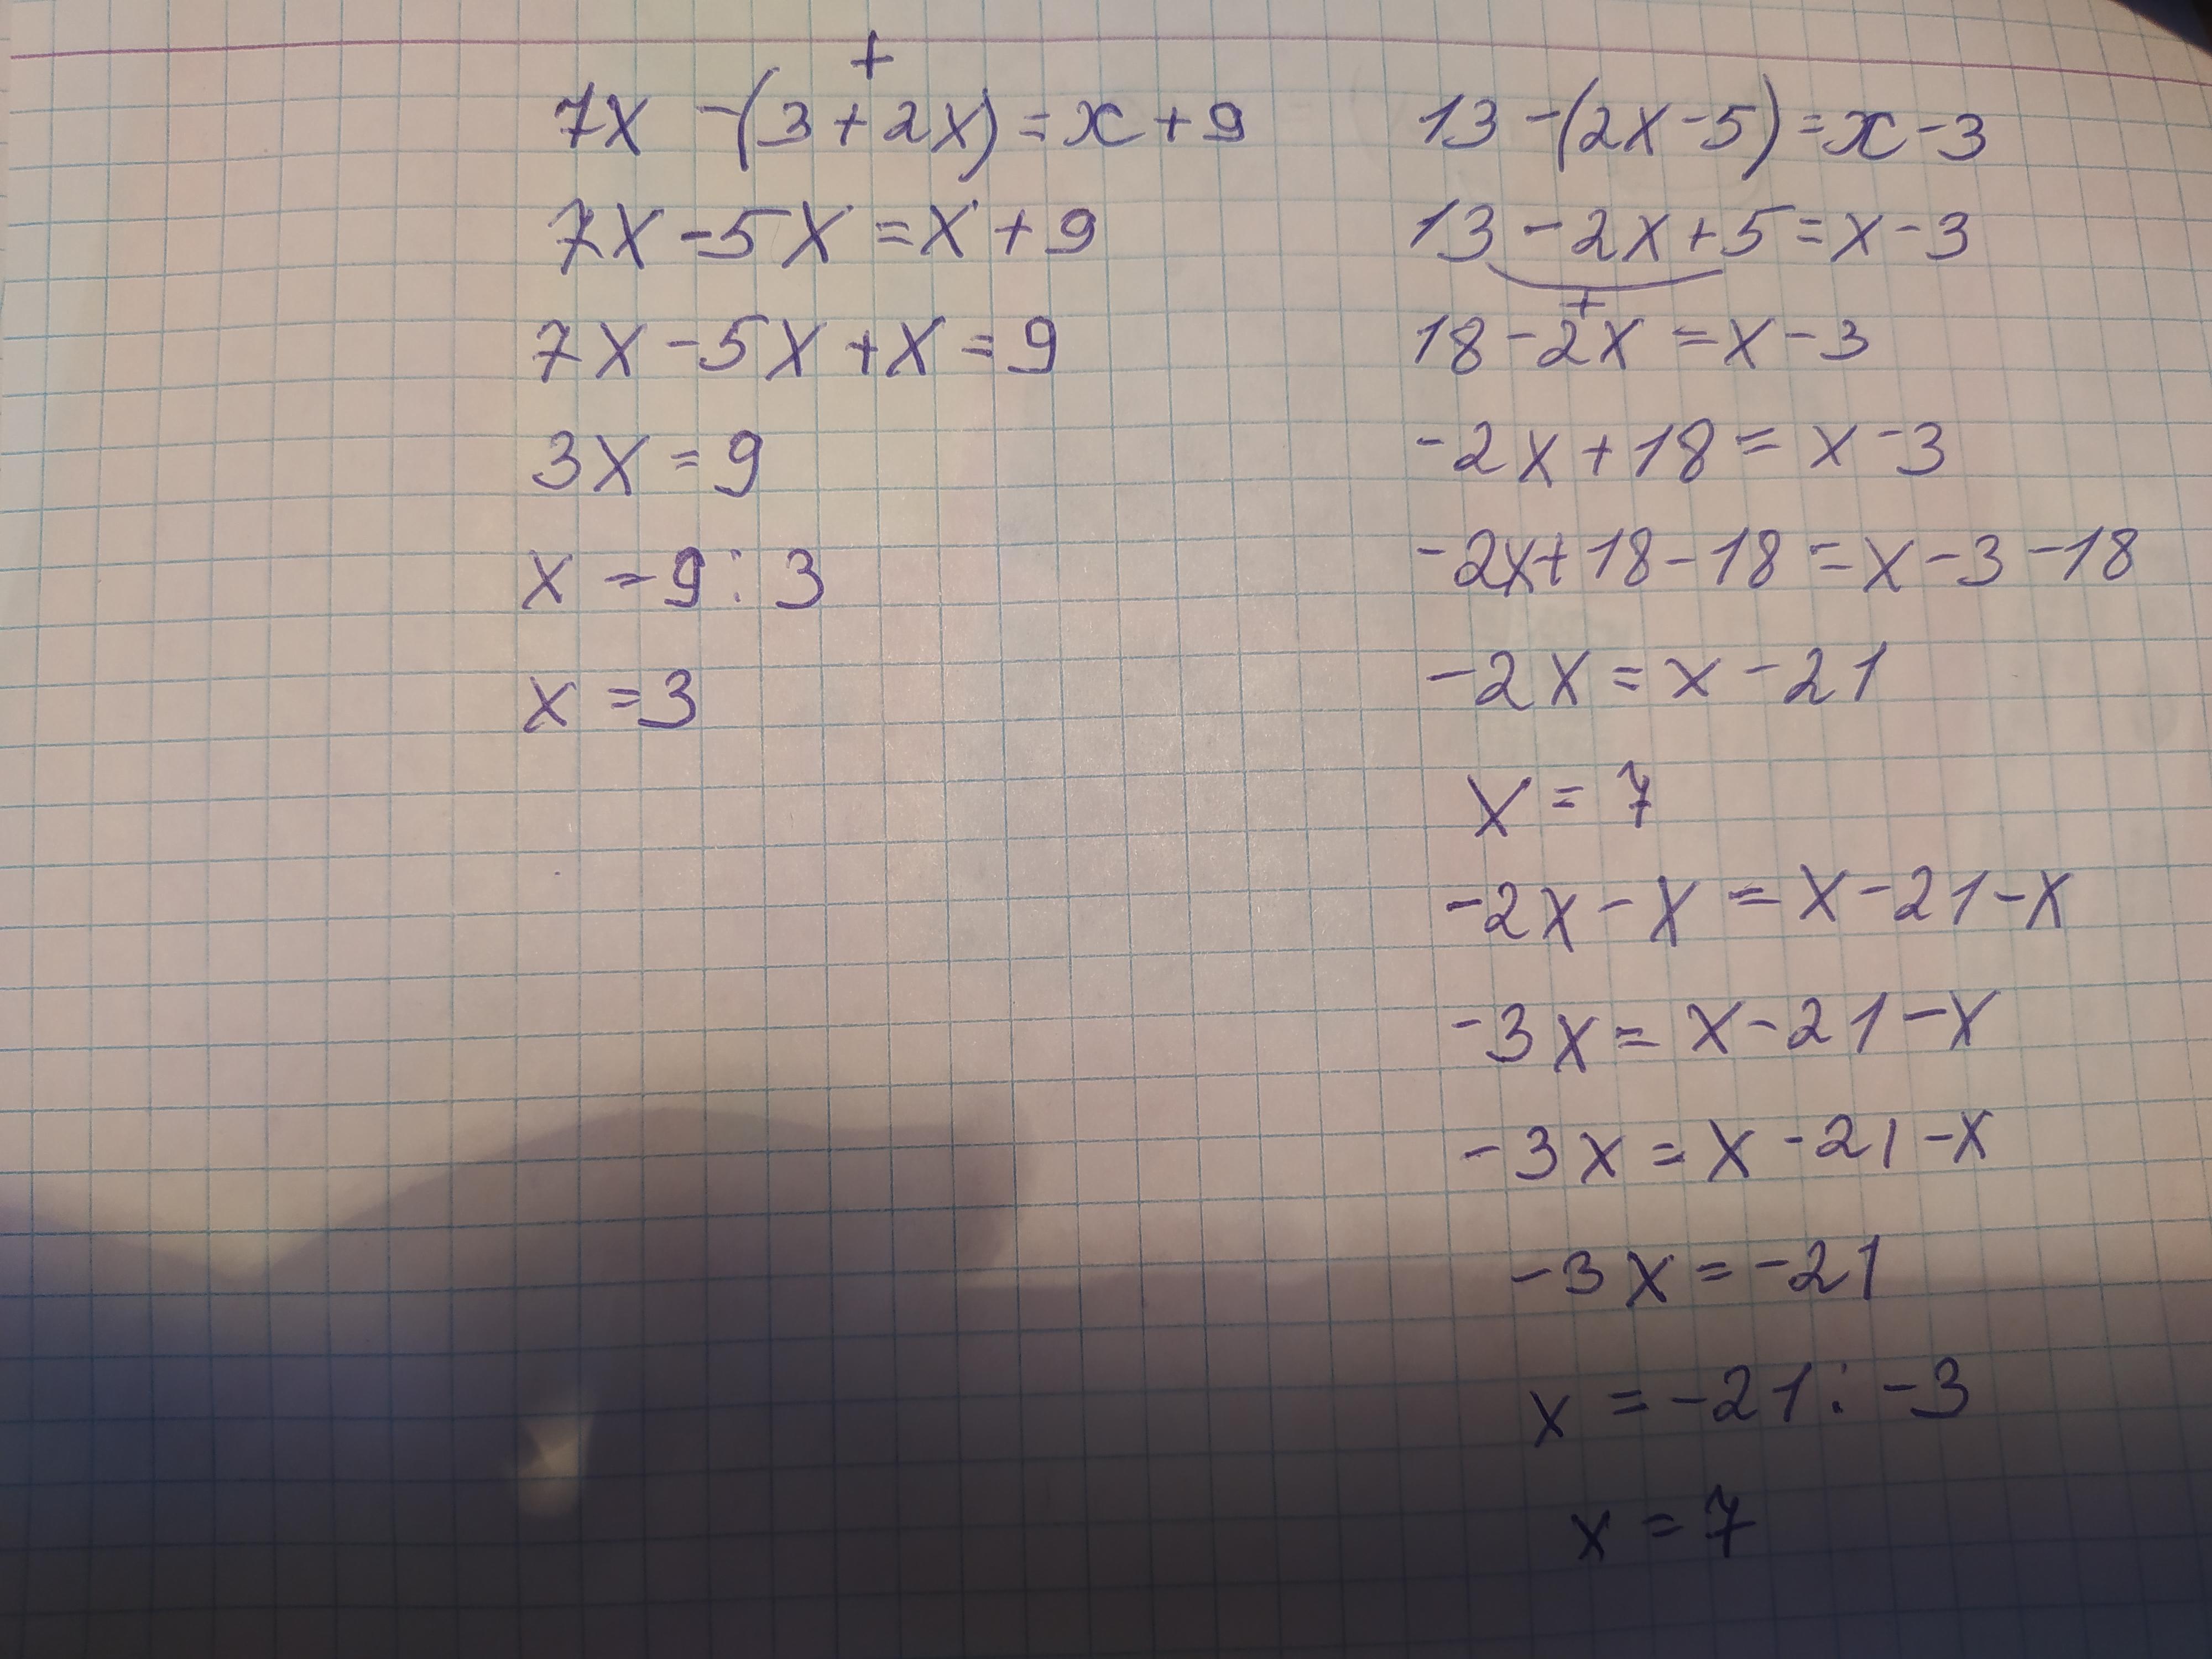 +
7x -(3+2x)=x+9
7x-5x=x+9
7x-5x+x=9
3x=9
x=9:3
x=3
13-(2x-5)=x-3
13-2x+5=x-3
+
18-2x=x-3
-2x+18=x-3
-2x+18-18=x-3-18
-2x=x-21
x=7
-2x-x=x-21-x
-3x=x-21-x
-3x=x-21-x
-3x=-21
x=-21:-3
x=7